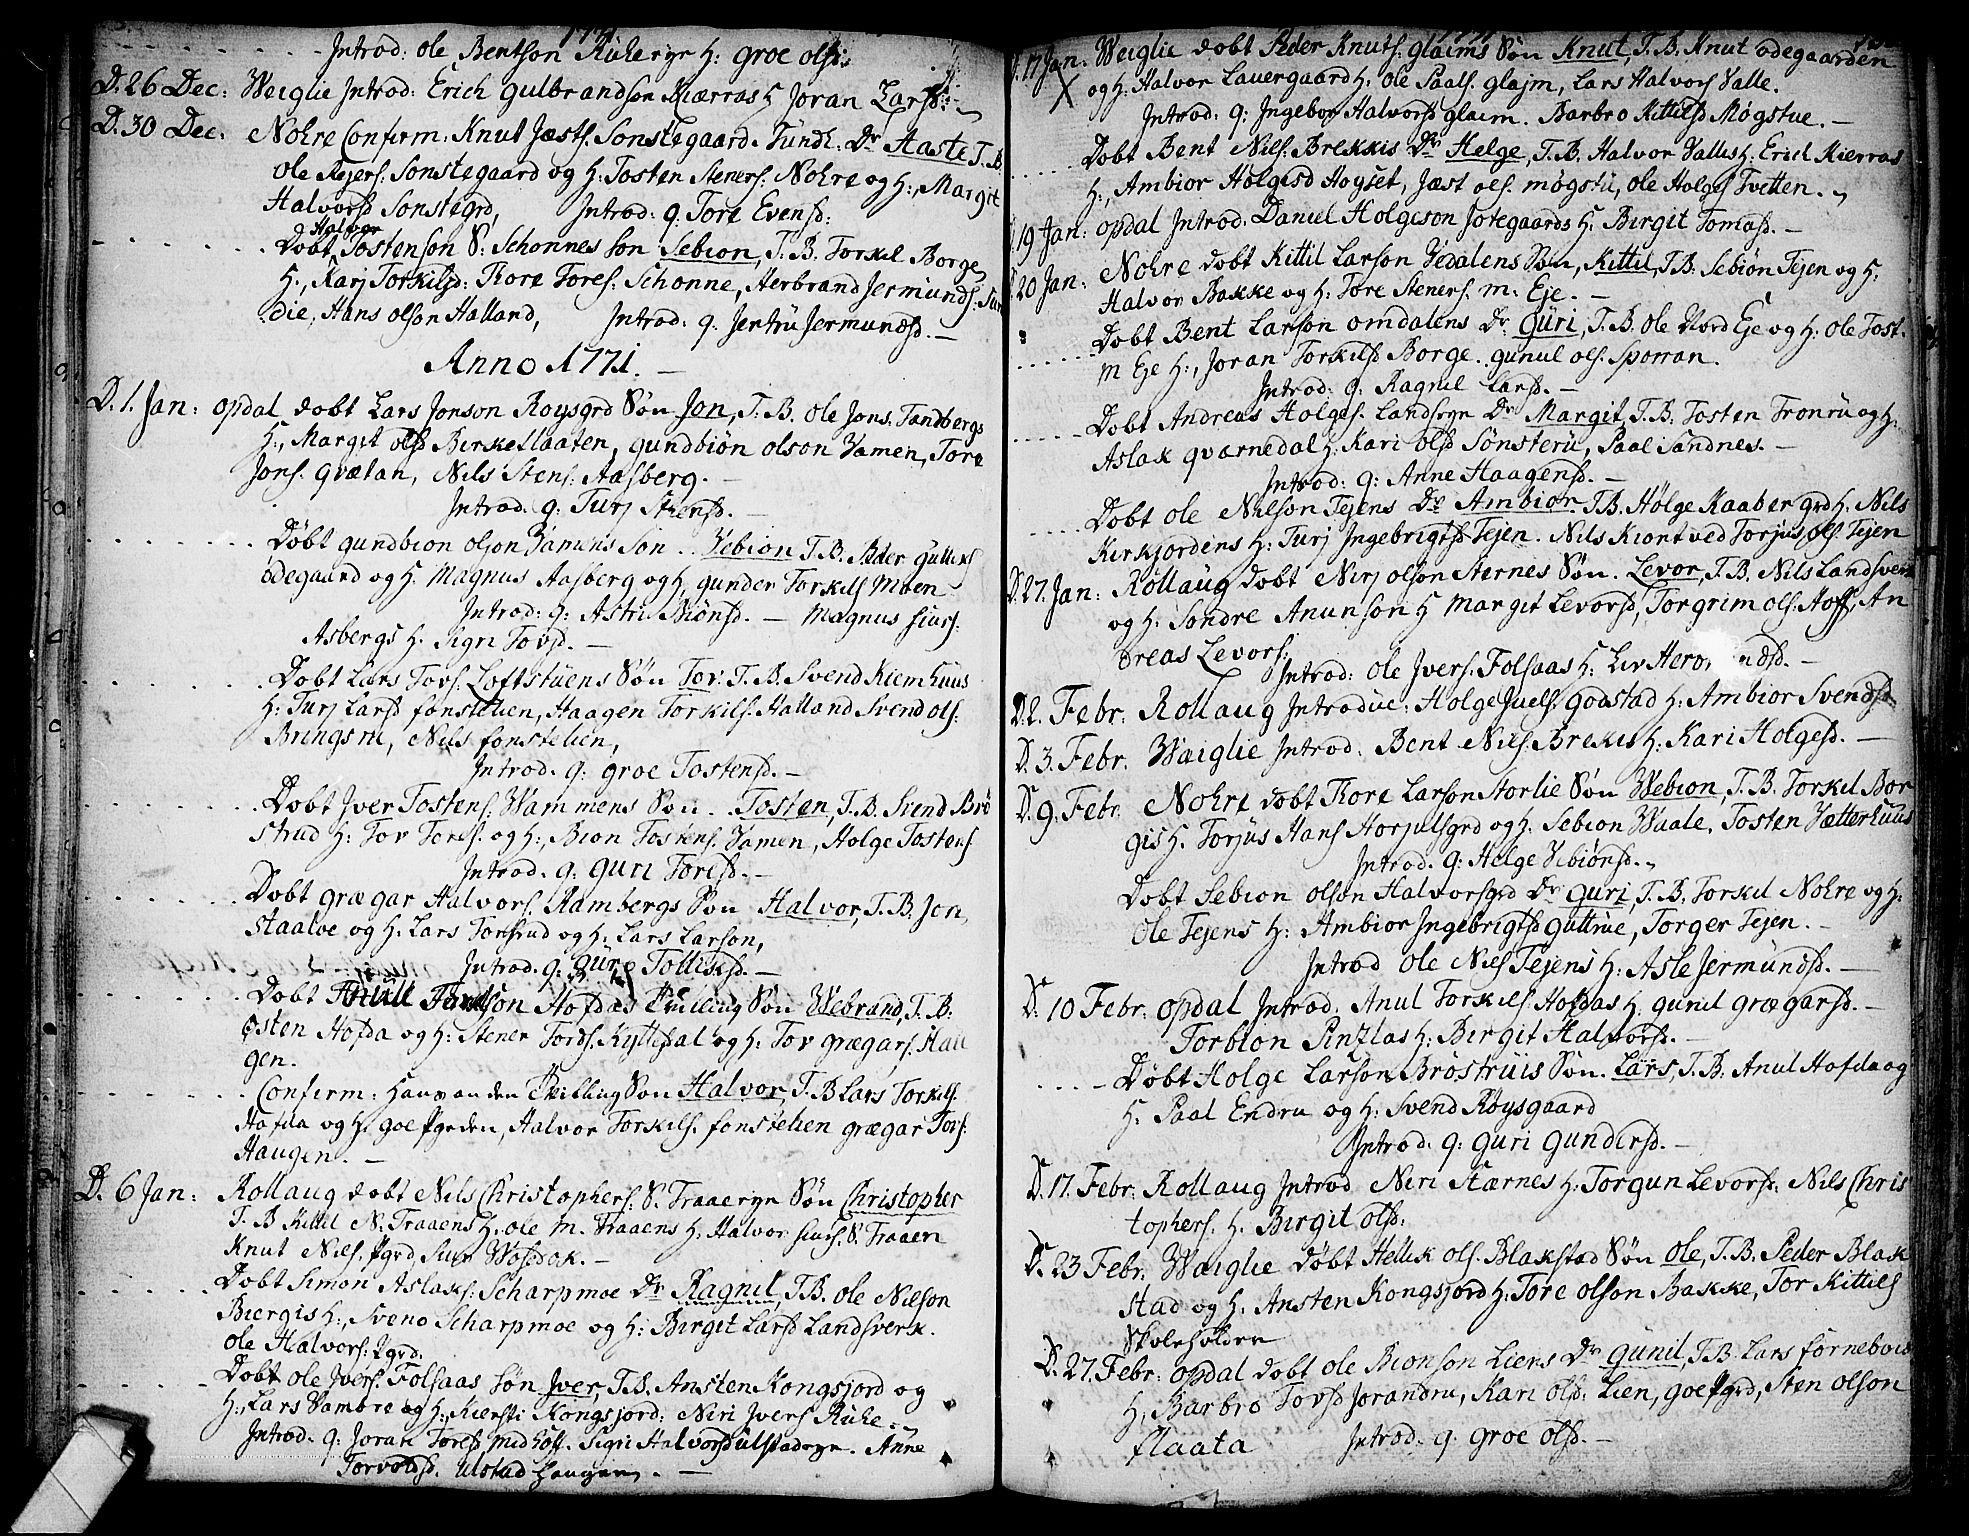 1771
Introd: ole Bentson Ruheryr H: groe olsd:
D. 26 Dec: Weiglie Introd: Erich Gulbrandson Kiærras H Joran Larsd:
D. 30 Dec: Nohre Confirm: Knut Jæsts. Sonstegaard. Fundl. Dr Aaste T.B.
ole Rejers. Sonstegaard og H: Tosten Steners. Nohre og H:, Margit
Halvorsd Sonstegrd, Introd: q. Tore Evensd:
Halvor
Dobt Tostenson S: Schonnes son Sebion, T.B. Torkel Borge
H:, Karj Torkilsd: Thore Tores. Schonne, Herbrand Jermunds. Sur
die, Hans olson Halland, Introd: q. Jertru Jermundsd. —
Anno 1771. —
D. 1. Jan: opdal dobt Lars Jonson Roysgrd Søn Jon, T.B. ole Jons. Tandbergs
H:, Margit olsd Birkellaaten, gundbion olson Vamen, Tore
Jons. qvætan, Nils Stens. Aasberg. —
Introd. q: Turj Stensd. —
Døbt gundbion olson Vamens Søn .. Vebion T.B. Peder gulliks
ødegaard og H. Magnus Aasberg og H, gunder Torkils Moen
Introd: q: Astri Biønsd. — Magnus siurs.
Asbergs H. Sigri Tovsd. —
Dobt Lars Tovs. Loftstuens Søn Tov. T.B. Svend Kiemhuus
H: Turj Larsd fonstelien, Haagen Torkils. Halland Svend ols.
Bringsru, Nils fonstelien,
Introd. q: groe Tostensd. —
Dobt Jver Tostens. Wammens Søn .. Tosten, T.B. Svend Brø
strud H: Tov Tores. og H:, Bion Tostens. Vamen, Holge Tostens
Introd. q: guri Toresd. —
Dobt grægar Halvors. Rambergs Søn Halvor, T.B. Jon
Staaloe og H: Lars Torsrud og H: Lars Larson,
Introd. q: gure Tolleksd. —
Dobt Anul Torkelson Hofdas Tvilling Søn Webrand, T.B.
osten Hofda og H: Stener Tords. Kyttesdal og H: Tov grægars. Hau
gen.
Confirm: Hans anden Tvilling Søn Halvor, T.B Lars Torkils.
Hofda og H, goe Pgrden, Halvor Torkils. fonstelien grægar Tors.
Haugen. —
D. 6 Jan: Rollaug dobt Nils Christophers. S. Traaeryn Søn Christopher
T.B Kittil N. Traaens H. ole M. Traaens H. Halvor siurs. S. Traaen
Knut Niels. Pgrd, Siur Wosdok. —
Dobt Simon Aslaks. Scharpmoe Dr Ragnil, T.B. ole Nilson
Biergis H:, Sveno Scharpmoe og H: Birgit Larsd Landsverk.
ole Halvors: Pgrd.
Dobt ole Jvers. Folsaas søn Jver, T.B. Ansten Kongsjord og
H:, Lars Vambre og H:, Kiersti Kongsjord: Niri Jvers Ruhe. —
Introd. q: Joran Toresd Midhoff. Sigri Halvorsd ulstaderyn. Anne
Torvoldsd. ulstad Haugen. —
D. 17 Jan: Weiglie dobt Peder Knuts. glaims Søn Knut, T.B. Knut odegaarden
og H: Halvor Lauergaard H: ole Paals. glajm, Lars Halvors Valle.
Introd: q: Ingebor Halvorsd glaim. Barbro Kittilsd Møgstue. —
Dobt Bent Nils. Brekkis Dr Helge, T.B. Halvor Vallis H: Erich Kierras
H:, Ambior Holgesd Hoyset, Jæst ols. møgstu, ole Holges Tvetten.
19 Jan: opdal Introd: Daniel Holgeson Jotegaards H: Birgit Tomasd. —
20 Jan: Nohre dobt Kittil Larson Vedalens Søn, Kittil, T.B. Sebiøn Tejen og H.
Halvor Bakke og H: Tore Steners. m: Eje. —
Dobt Bent Larson omdalens Dr Guri, T.B. ole Nord Eje og H: ole Tost.
m Eje H:, Joran Torkilsd Borge. gunul ols. Sporran.
Introd: q: Ragnil Larsd. —
Dobt Andreas Holges. Landsegn Dr Margit, T.B. Tosten Tronru og H:
Aslak qværnedal H: Kari olsd Sønsteru, Paal Sandnes. —
Introd: q: Anne Haagensd. —
Dobt ole Nilson Tejens Dr Ambior. T.B. Holge Raaber grd H. Nils
Kirkjordens H: Turj Ingebrigtsd Tejen. Nils Kiont ved Torjus ols. Tejen
D. 27. Jan: Rollaug dobt Nirj olson Sternes Søn. Levor, T.B. Nils Landsverk
og H: Sondre Anunson H Margit Levorsd, Torgrim ols. Hoff, An
dreas Levors:
Introd: ole Jvers. Folsaas H. Liv Her ndsd. —
D. 2. Febr. Rollaug Introduc: Holge Juels. godstad H: Ambior Svendsd.
D. 3. Febr. Waiglie Introd: Bent Niels. Brekis H. Kari Holgesd. —
D. 9. Febr Nohre dobt Thore Larson Storlie Søn Webion, T.B. Torkil Bor
gis H. Torjus Hans Horjulsgrd og H. Sebion Wuale, Tosten Vætterhuus
Introd. q: Helge Vebiønsd. —
Dobt Sebion olson Halvorsgrd Dr guri, T.B. Torkil Nohre og H:
ole Tejens H: Ambior Ingebrigtsd guttrue, Torger Tejen. —
Introd ole Niels Tejens H: Asle Jermundsd. —
D. 10 Febr. opdal Introd. Anul Torkils Hofdas H. gunil grægarsd. —
Torbion Pintlas H: Birgit Halvorsd. —
Døbt Holge Larson Brøstruis Søn. Lars, T.B. Anul Hofda og
H. Paal Endru og H: Svend Røysgaard
Introd. q: guri gundersd. —
D. 17. Febr. Rollaug Introd. Niri Stærnes H: Torgun Levorsd. Nils Chris
tophers. H. Birgit olsd.
D. 23 Febr. Waiglie døbt Hellik ols. Blakstad Søn ole, T.B. Peder Blak
stad og H. Ansten Kongsjord H: Tore olson Bakke, Tor Kittils
Skoleholder
D. 27. Febr: opdal dobt ole Bionson Liens Dr gunil, T.B. Lars fornebo
H, Barbro Tovsd Jorandru, Kari olsd. Lien, goe Pgrd, Sten olson
flaata Introd. q. groe olsd. —